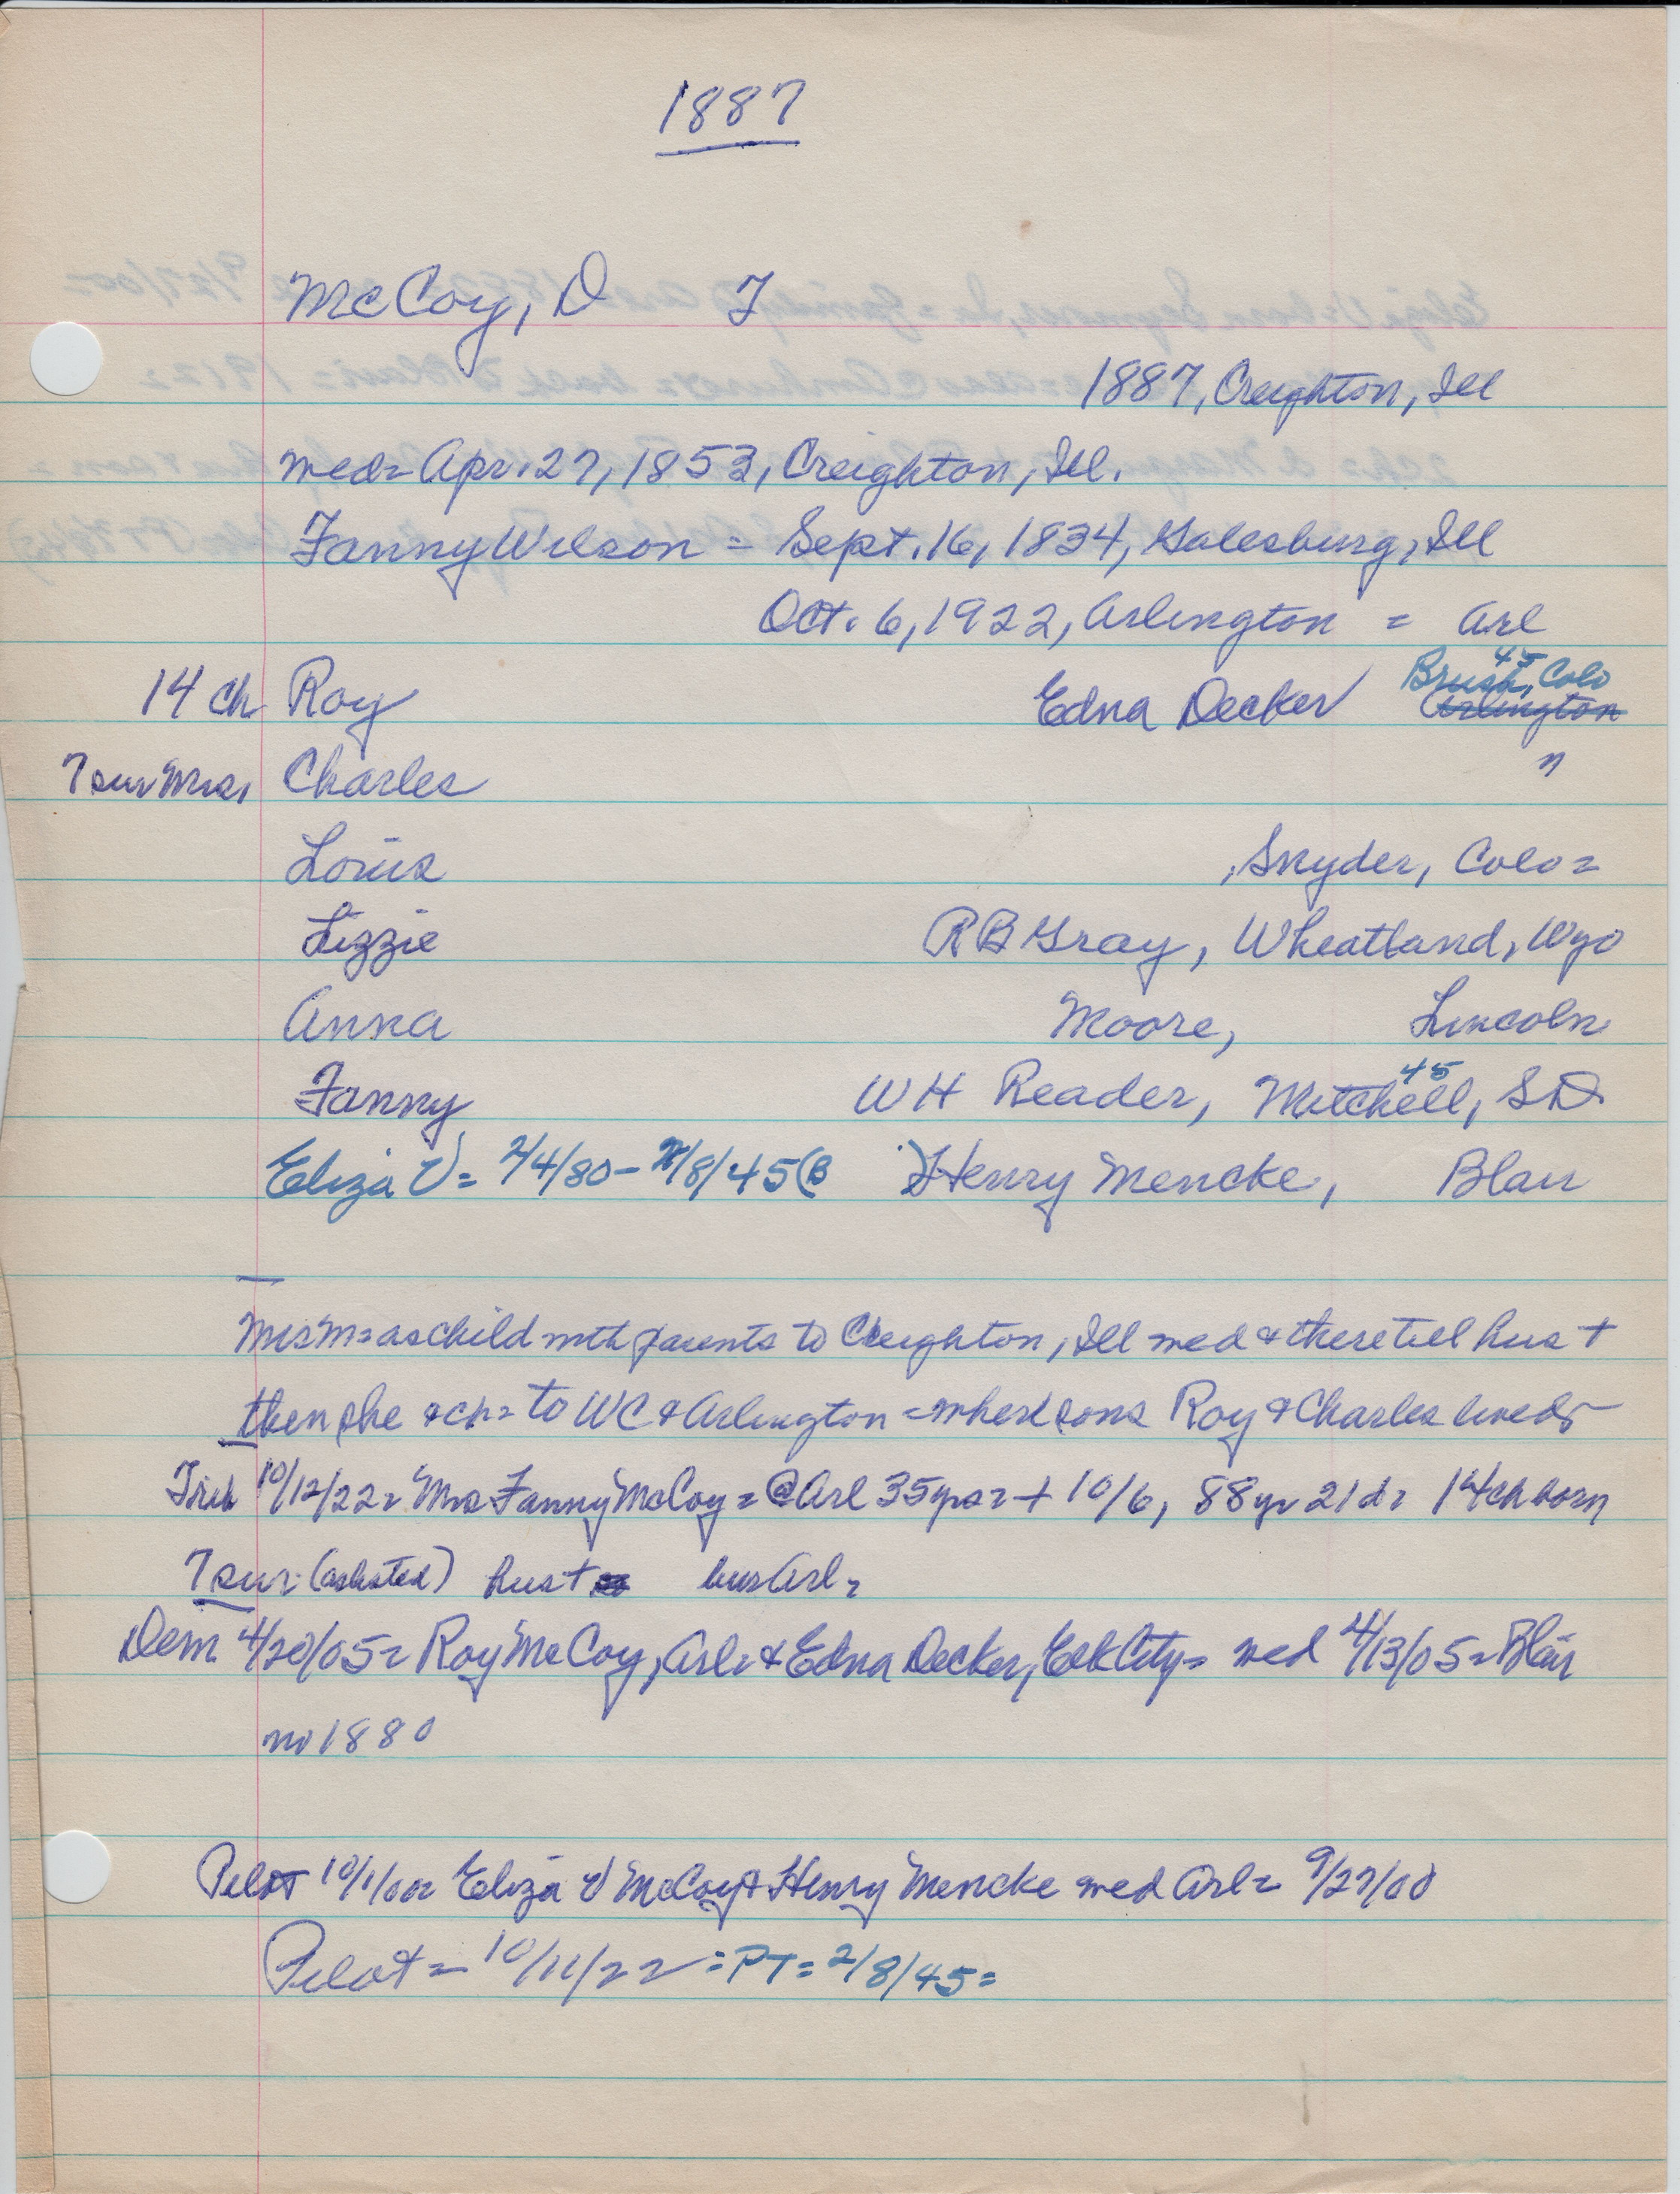 1887
McCoy, D J
1887, Creighton, Ill
med= Apr. 27, 1853, Creighton, Ill.
Fanny Wilson = Sept. 16, 1834, Galesburg, Ill
Oct. 6, 1922, Arlington = Arl
14 ch Roy Edna Decker Brush, Colo 45 Arlington
7 sur Mrs, Charles "
Louis , Snyder, Colo=
Lizzie R B Gray, Wheatland, Wyo
Anna Moore, Lincoln
Fanny W H Reader, Mitchell, SD 45
Eliza V= 2/4/80 - 2/8/45 (B ) Henry Mencke, Blair
Mrs M= as child with parents to Creighton, Ill med & there till hus +
then she & ch= to WC & Arlington = where sons Roy & Charles lived=
Trib 10/12/22= Mrs Fanny McCoy= @ Arl 35 yrs= + 10/6, 88 yr 21 d= 14 ch born
7 sur= hus + bur Arl=
Dem 4/20/05= Roy McCoy, Arl= & Edna Decker, Elk City= med 4/13/05= Blair
no 1880
Pilot 10/1/00= Eliza V McCoy & Henry Mencke med Arl= 9/27/00
Pilot= 10/11/22= PT= 2/8/45=